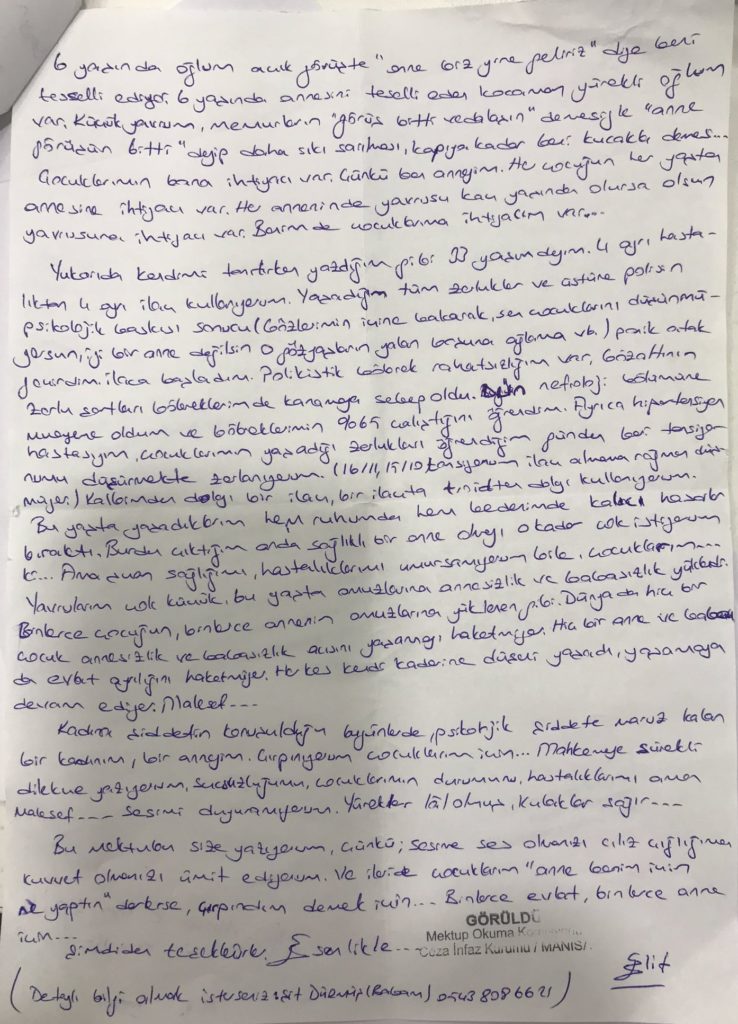 6 yaşında oğlum açık görüşte "anne biz yine geliriz" diye beni
teselli ediyor. 6 yaşında annesini teselli eden kocaman yürekli oğlum
var. Küçük yavrum, memurların "görüş bitti vedalaşın" demesiyle "anne
görüşün bitti" deyip daha sıkı sarılması, kapıya kadar beni kucakla demes...
Çocuklarımın bana ihtiyacı var. Çünkü ben anneyim. Her çocuğun her yaşta
annesine ihtiyacı var. Her anneninde yavrusu kaç yaşında olursa olsun
yavrusuna ihtiyacı var. Benimde çocuklarıma ihtiyacım var...
Yukarıda kendimi tanıtırken yazdığım gibi 33 yaşındayım. 4 ayrı hasta-
lıktan 4 ayrı ilaç kullanıyorum. Yaşadığım tüm zorluklar ve üstüne polisin
psikolojik baskısı sonucu (gözlerimin içine bakarak, sen çocuklarını düşünmü-
yorsun, iyi bir anne değilsin o gözyaşların yalan boşuna ağlama vb.) panik atak
geçirdim. ilaca başladım. Polikistik böbrek rahatsızlığım var, gözaltının
zorlu şartları böbreklerimde kanamaya sebep oldu. nefroloji bölümüne
muayene oldum ve böbreklerimin %65 çalıştığını öğrendim. Ayrıca hipertansiyon
hastasıyım, çocuklarımın yaşadığı zorlukları öğrendiğim günden beri tansiyo-
numu düşürmekte zorlanıyorum. (16/11, 15/10 tansiyonum ilaç almama rağmen düş-
müyor.) Kalbimden dolayı bir ilaç, bir ilaçta tiroidten dolayı kullanıyorum.
Bu yaşta yaşadıklarım hem ruhumda hem bedenimde kalıcı hasarlar
bıraktı. Burdan çıktığım anda sağlıklı bir anne olmayı o kadar çok istiyorum
ki... Ama şuan sağlığımı, hastalıklarımı umursamıyorum bile, çocuklarım...
Yavrularım çok küçük, bu yaşta omuzlarına annesizlik ve babasızlık yüklendi.
Binlerce çocuğun, binlerce annenin omuzlarına yüklenen gibi. Dünyada hiç bir
çocuk annesizlik ve babasızlık acısını yaşamayı haketmiyor. Hiç bir anne ve baba
da evlat ayrılığını haketmiyor. Herkes kendi kaderine düşeni yaşadı, yaşamaya
devam ediyor. Malesef...
Kadına şiddetin konuşulduğu bugünlerde, psikolojik şiddete maruz kalan
bir kadınım, bir anneyim. Çırpınıyorum çocuklarım için... Mahkemeye sürekli
dilekçe yazıyorum, suçsuzluğumu, çocuklarımın durumunu, hastalıklarımı ama
malesef... sesimi duyuramıyorum. Yürekler lâl olmuş, kulaklar sağır...
Bu mektubu size yazıyorum, çünkü; sesime ses olmanızı cılız çığlığıma
kuvvet olmanızı ümit ediyorum. Ve ileride çocuklarım "anne benim için
ne yaptın" derlerse, çırpındım demek için... Binlerce evlat, binlerce anne
için...
Şimdiden teşekkürler. Esenlikle...
GÖRÜLDÜ
Mektup Okuma
Ceza İnfaz Kurumu / MANİSA
Elif
(Detaylı bilgi almak isterseniz (Babam) 0543 808 66 21)